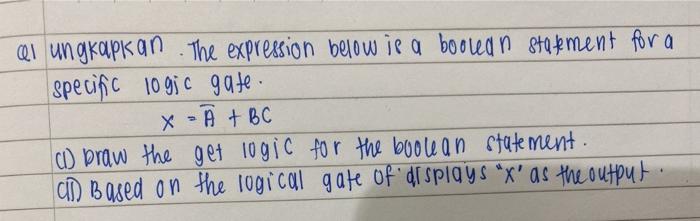 Q1 ungkapkan. The expression below is a boolean statement for a
specific logic gate.
x = A̅ + BC
(i) Draw the get logic for the boolean statement.
(ii) Based on the logical gate of displays "x" as the output.